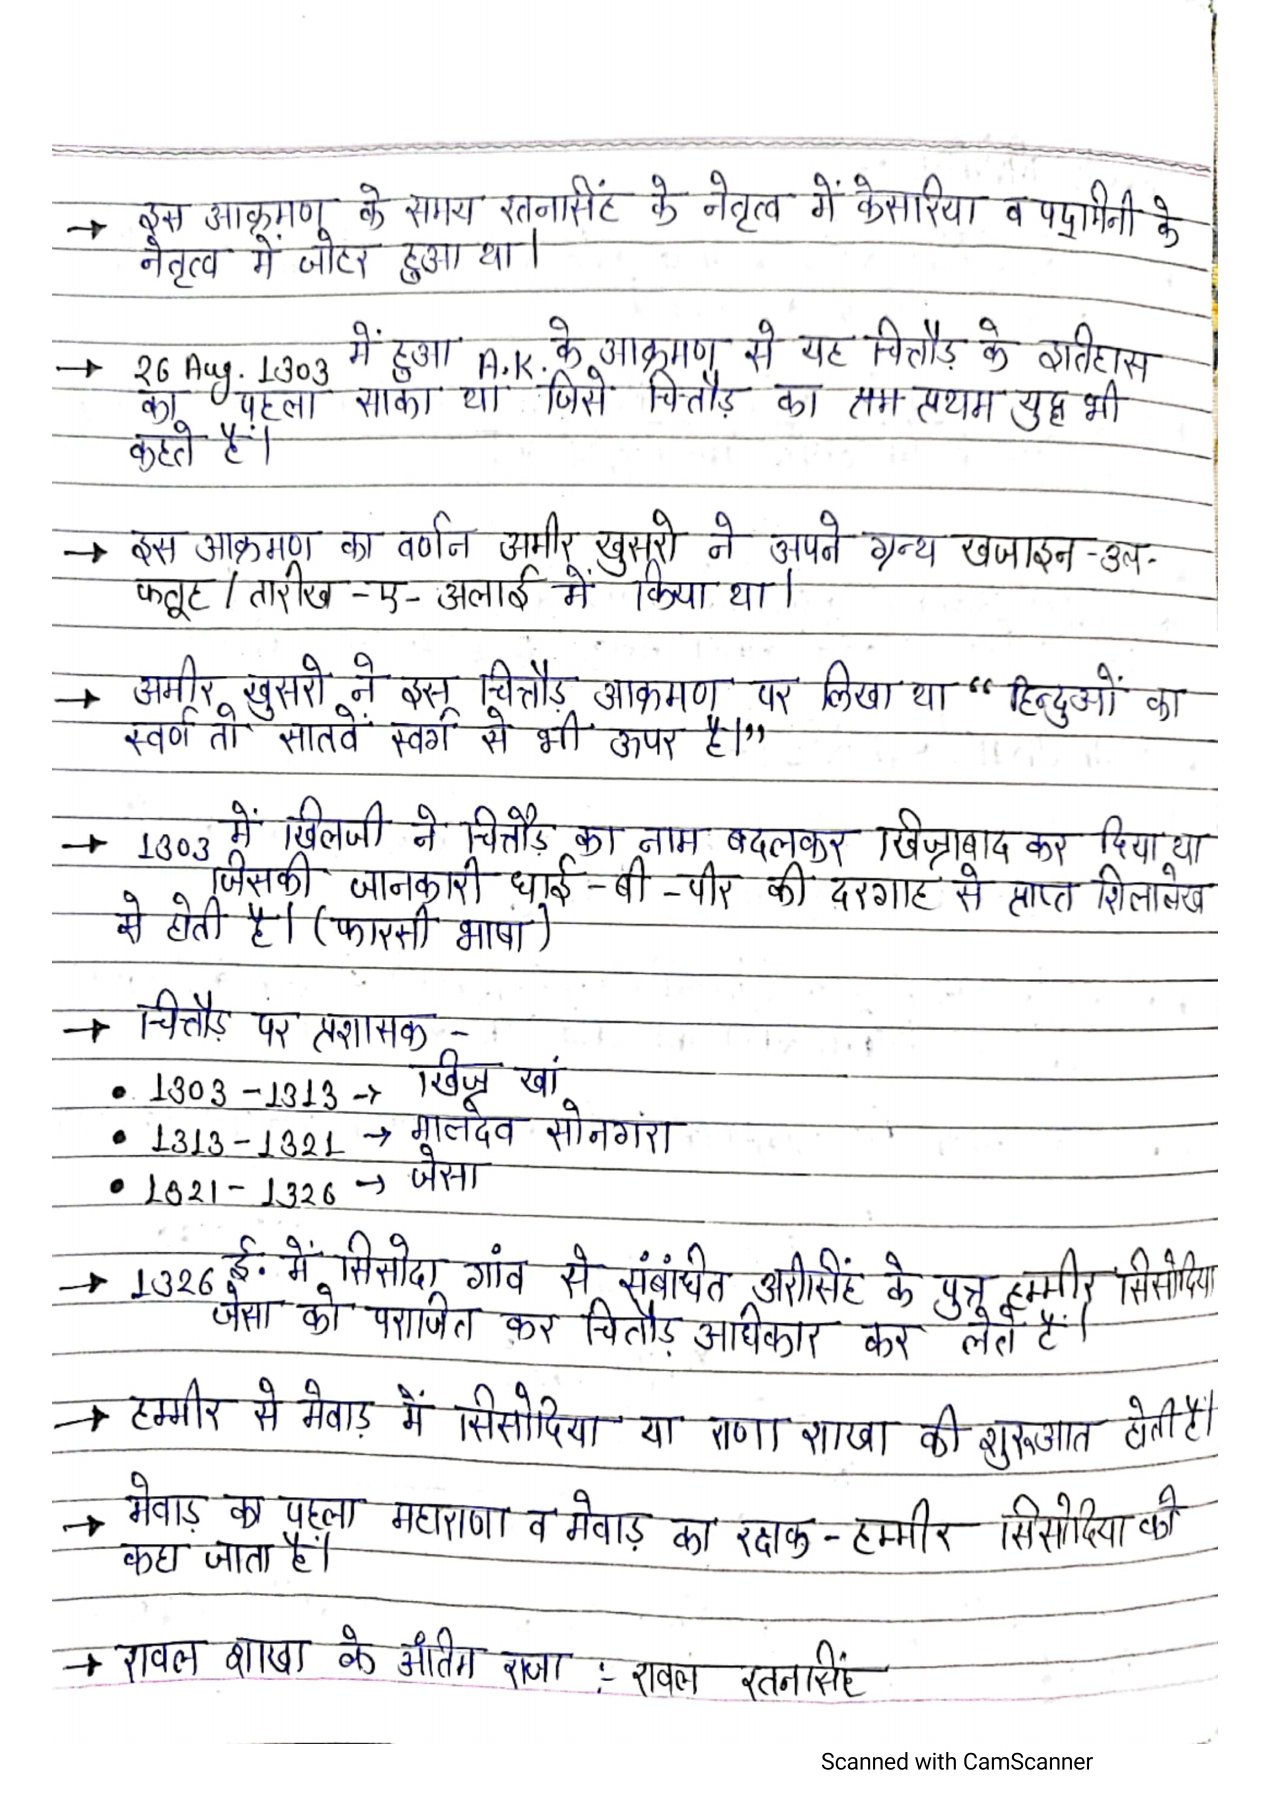 → इस आक्रमण के समय रतनसिंह के नेतृत्व में केसरिया व पद्मिनी के
नेतृत्व में जौहर हुआ था।
→ 26 Aug. 1303 में हुआ A.K. के आक्रमण से यह चित्तौड़ के इतिहास
का पहला साका था जिसे चित्तौड़ का प्रथम युद्ध भी
कहते हैं।
→ इस आक्रमण का वर्णन अमीर खुसरो ने अपने ग्रन्थ खजाइन-उल-
फतूह / तारीख-ए-अलाई में किया था।
→ अमीर खुसरो ने इस चित्तौड़ आक्रमण पर लिखा था “ हिन्दुओं का
स्वर्ण तो सातवें स्वर्ग से भी ऊपर है।”
→ 1303 में खिलजी ने चित्तौड़ का नाम बदलकर खिज्राबाद कर दिया था
जिसकी जानकारी धाई-बी-पीर की दरगाह से प्राप्त शिलालेख
से होती है। (फारसी भाषा)
→ चित्तौड़ पर प्रशासक -
• 1303-1313 → खिज्र खां
• 1313-1321 → मालदेव सोनगरा
• 1321-1326 → जेसा
→ 1326 ई. में सिसोदा गांव से संबंधित अरिसिंह के पुत्र हम्मीर सिसोदिया
जेसा को पराजित कर चित्तौड़ अधिकार कर लेते हैं।
→ हम्मीर से मेवाड़ में सिसोदिया या राणा शाखा की शुरुआत होती है।
→ मेवाड़ का पहला महाराणा व मेवाड़ का रक्षक - हम्मीर सिसोदिया को
कहा जाता है।
→ रावल शाखा के अंतिम राजा :- रावल रतनसिंह
Scanned with CamScanner